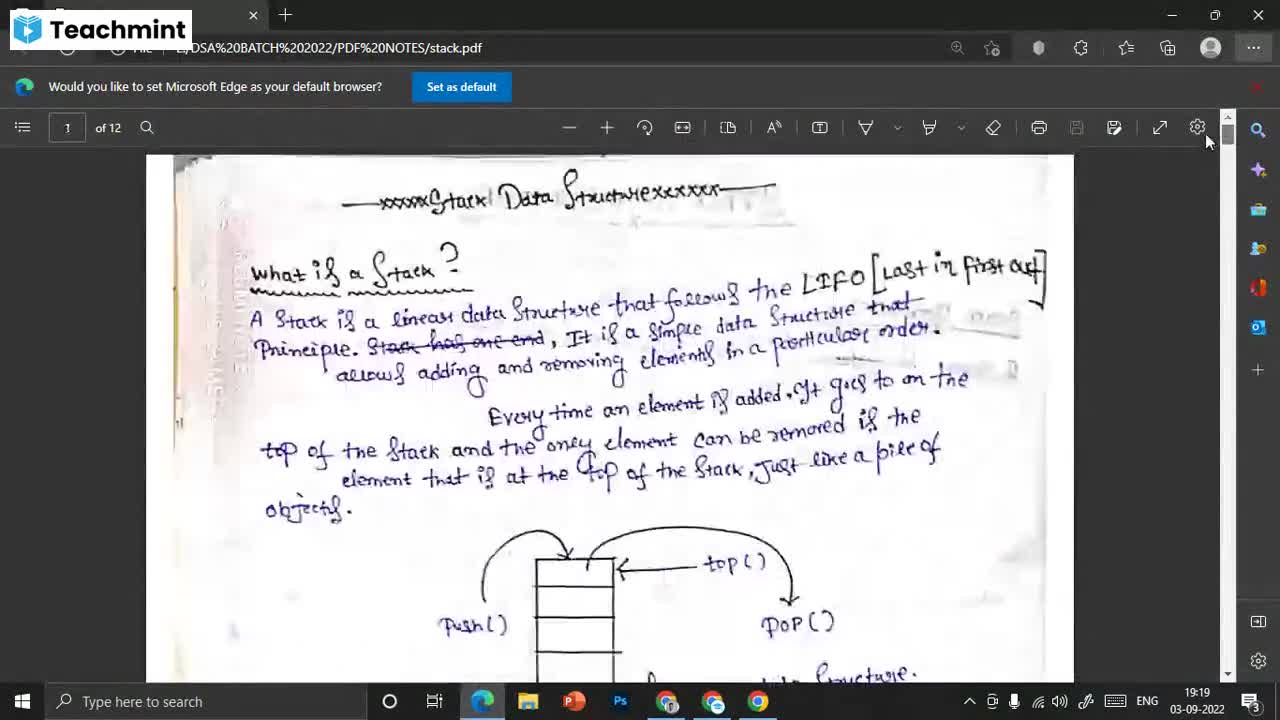 Teachmint
/DSA%20BATCH%202022/PDF%20NOTES/stack.pdf
Would you like to set Microsoft Edge as your default browser?
Set as default
1 of 12
xxxxx Stack Data Structure xxxxxx
What is a Stack?
A Stack is a linear data Structure that follows the LIFO [Last in first out]
Principle. Stack has one end, It is a simple data Structure that
allows adding and removing elements in a particular order.
Every time an element is added, It goes to on the
top of the Stack and the only element can be removed is the
element that is at the top of the Stack, Just like a pile of
objects.
top()
push()
POP()
data Structure.
Type here to search
ENG
19:19
03-09-2022
3